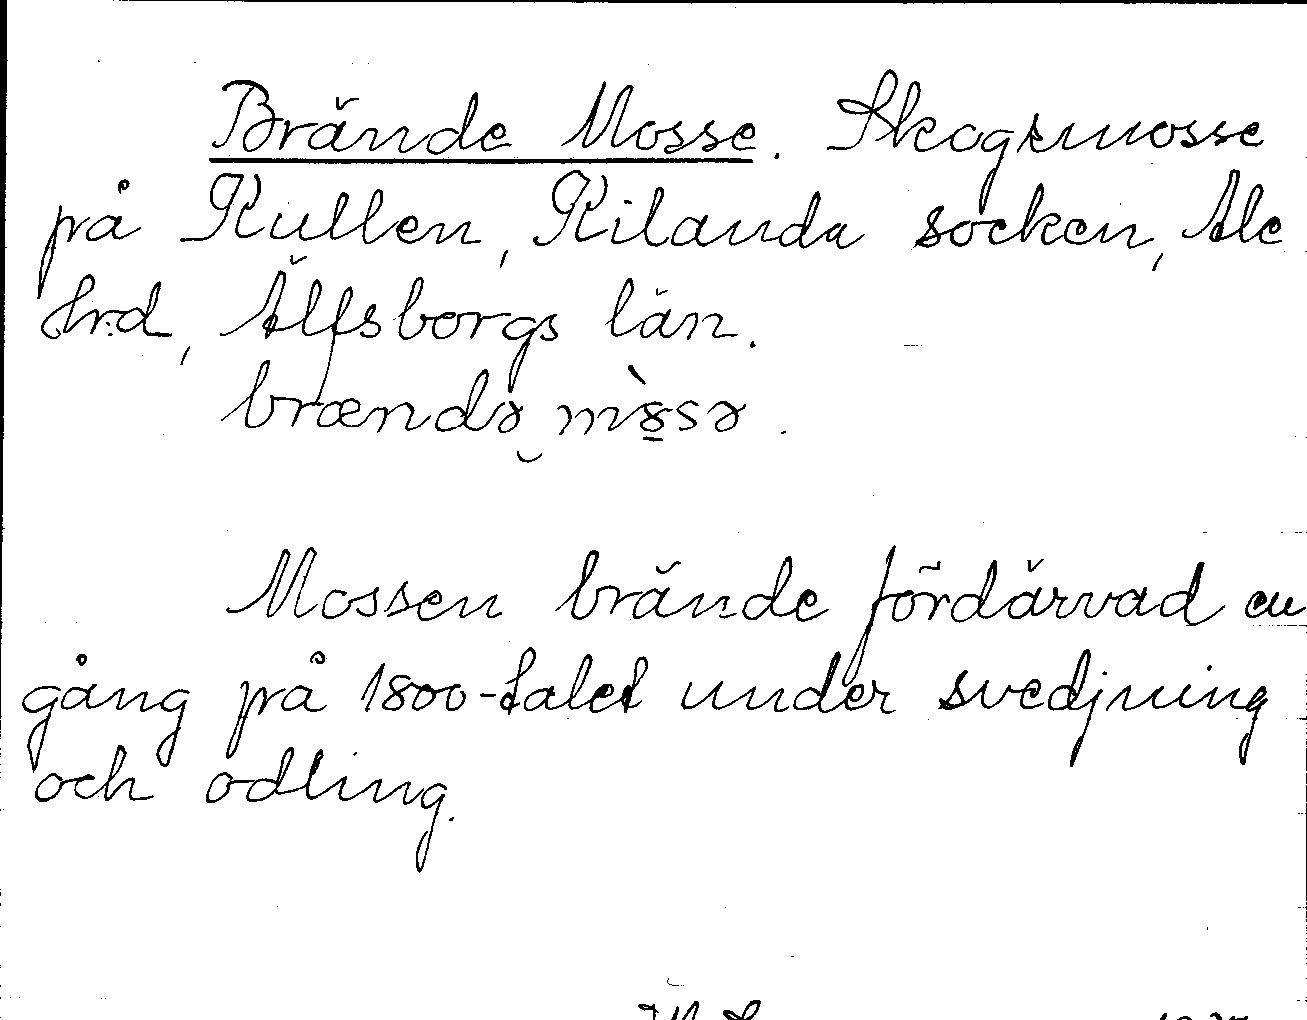 Brände Mosse. Skogsmosse
på Kullen, Kilanda socken, Ale
Hrd, Älfsborgs län.
brændə mȣ̀sə.
Mossen brände fördärvad en
gång på 1800-talet under svedjning
och odling.